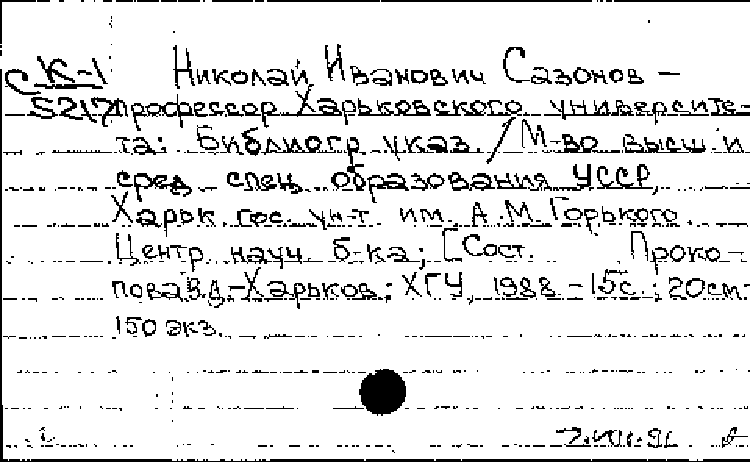 С К-1 Николай Иванович Сазонов –
5217 профессор Харьковского университе-
та: Библиогр. указ. / М-во высш. и
сред. спец. образования УССР,
Харьк. гос. ун-т им. А.М. Горького.
Центр. науч. б-ка; [Сост. Проко-
пова В.д. – Харьков: ХГУ, 1988 – 15с.; 20см.
150 экз.